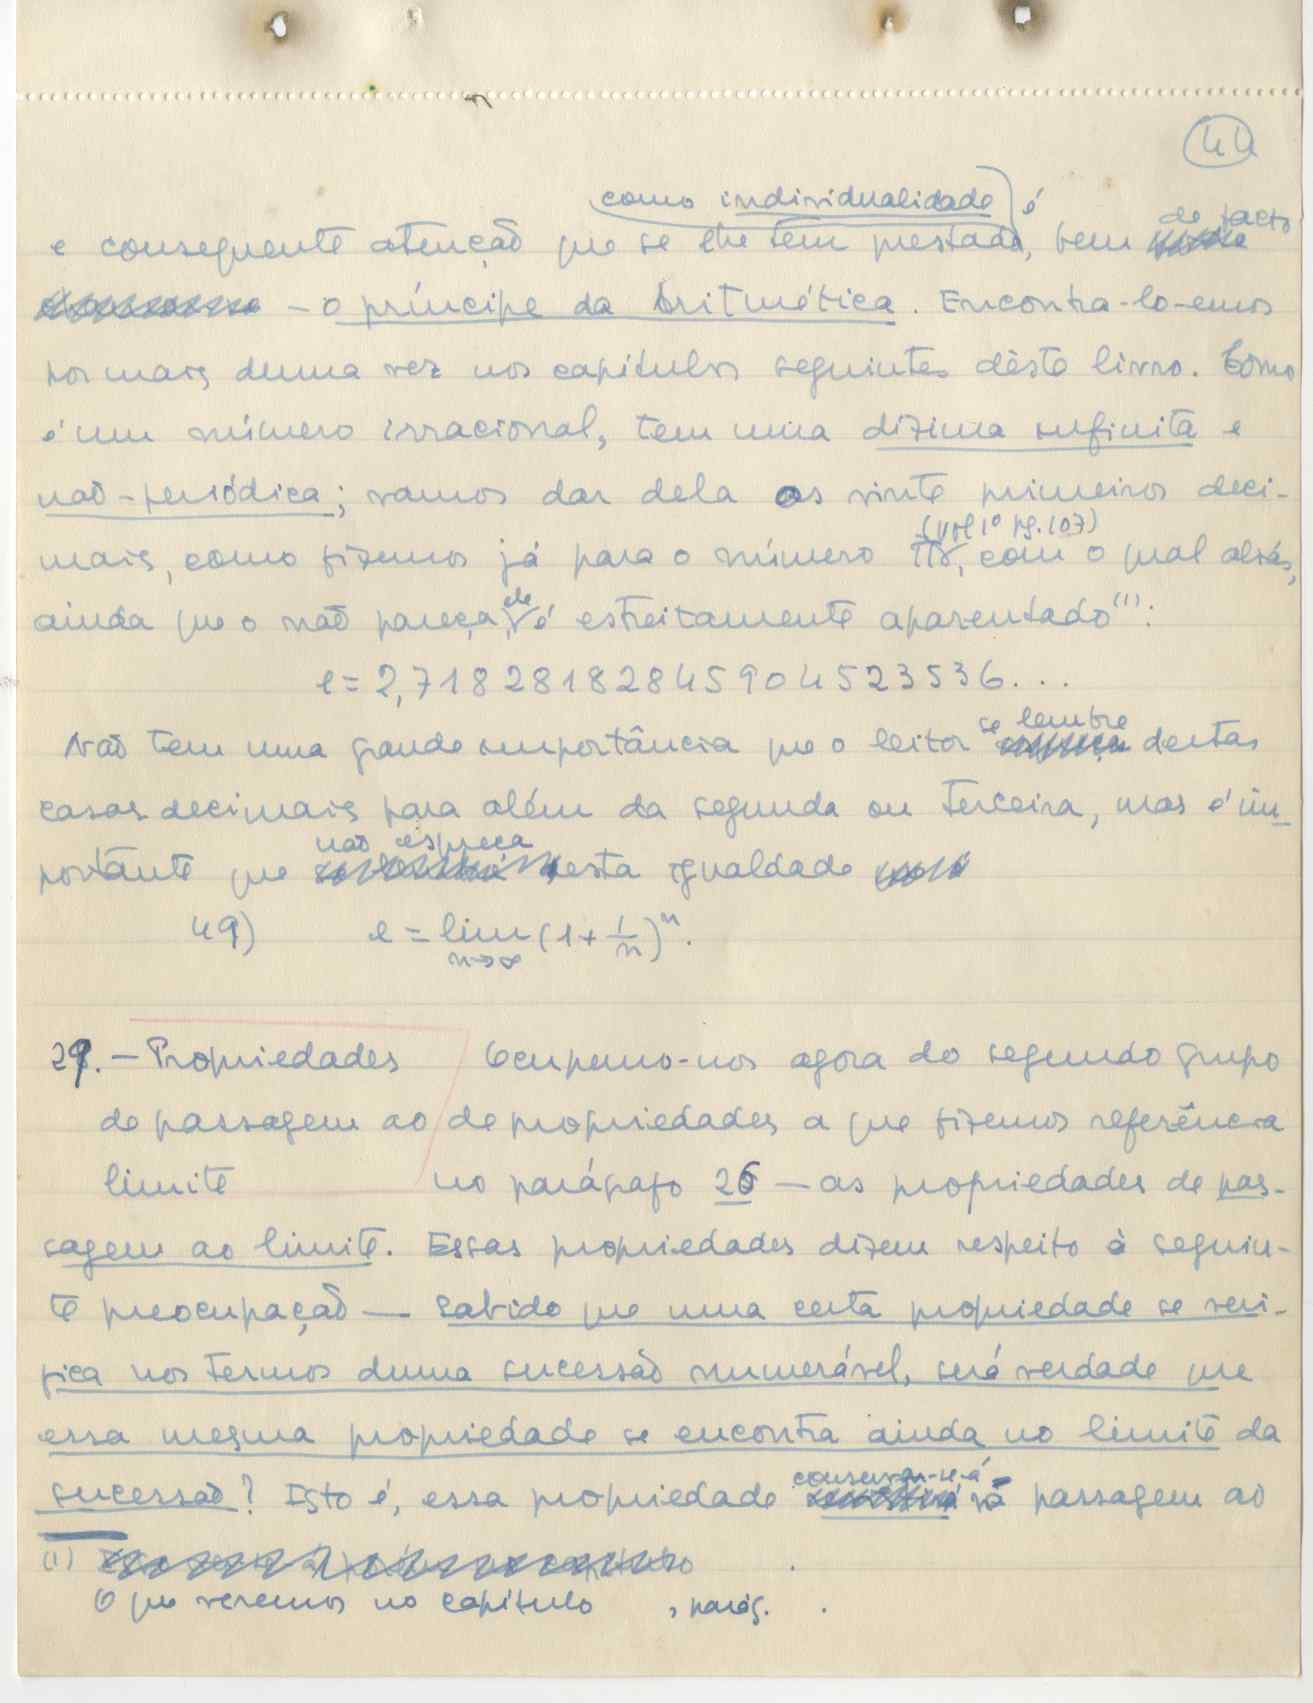 44
como individualidade é
de facto
e consequente atenção que se lhe tem prestado, bem
— o príncipe da Aritmética. Encontra-lo-emos
por mais duma vez nos capítulos seguintes dêste livro. Como
é um número irracional, tem uma dízima infinita e
não-periódica; vamos dar dela os vinte primeiros deci-
(vol 1º pg. 107)
mais, como fizemos já para o número π, com o qual aliás,
ainda que o não pareça, ele é estreitamente aparentado(1):
e = 2,71828182845904523536...
se lembre
Não tem uma grande importância que o leitor destas
casas decimais para além da segunda ou terceira, mas é im-
não esqueça
portante que esta igualdade
49) e = lim (1 + 1/n)^n.
n→∞
29. — Propriedades Ocupemo-nos agora do segundo grupo
de passagem ao de propriedades a que fizemos referência
limite no parágrafo 26 — as propriedades de pas-
sagem ao limite. Essas propriedades dizem respeito à seguin-
te preocupação — Sabido que uma certa propriedade se veri-
fica nos termos duma sucessão numerável, será verdade que
essa mesma propriedade se encontra ainda no limite da
conservar-se-á
sucessão? Isto é, essa propriedade na passagem ao
(1)
O que veremos no capítulo , parág. .